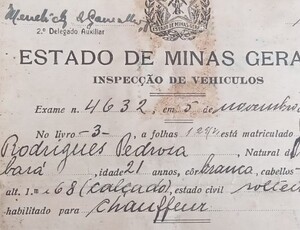 2.º Delegado Auxiliar
ESTADO DE MINAS GERA
INSPECÇÃO DE VEHICULOS
Exame n. 4632, em 5 de novembro
No livro -3- a folhas está matriculado
Rodrigues Pedrosa, Natural d
bará, idade 21 annos, côr branca, cabellos
alt. 1.m 68 (calçado), estado civil solteir
habilitado para chauffeur